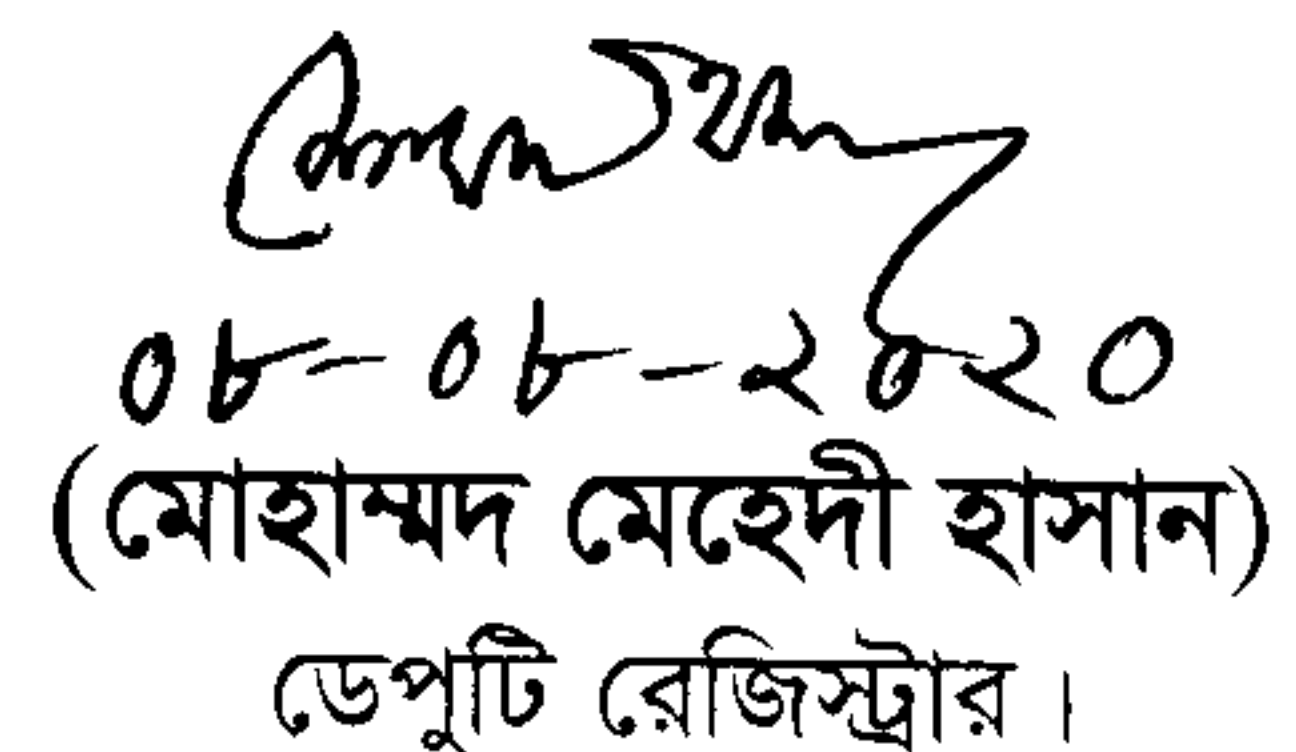 ০৮-০৮-২০২০
(মোহাম্মদ মেহেদী হাসান)
ডেপুটি রেজিস্ট্রার।